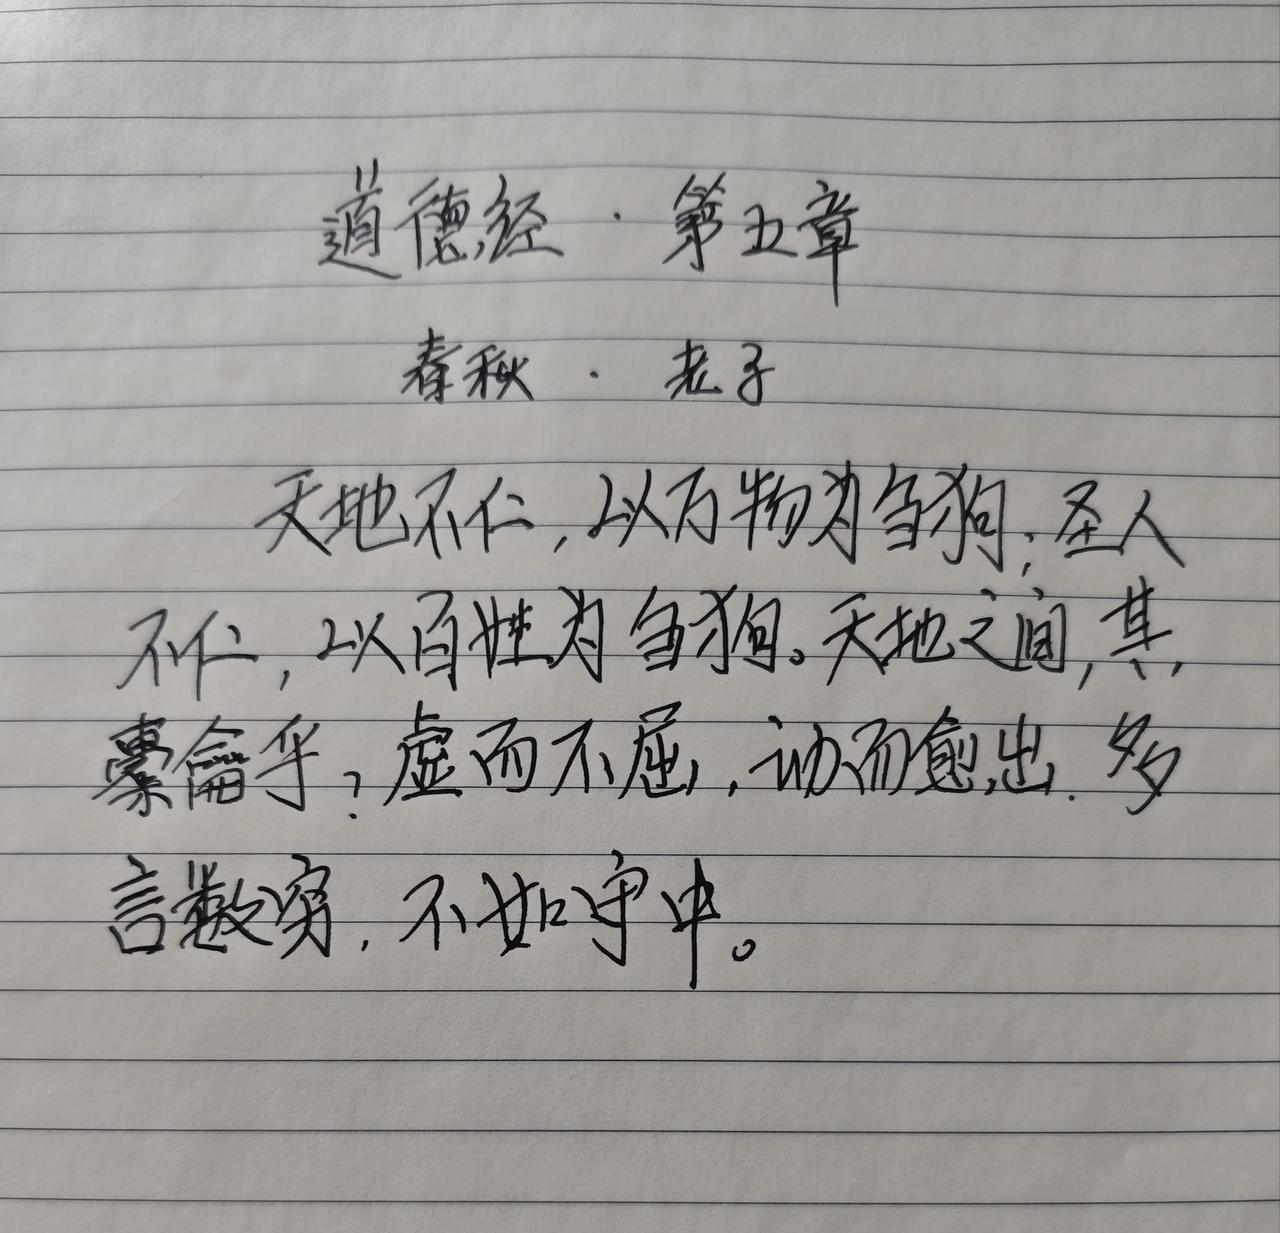 道德经·第五章
春秋·老子
天地不仁，以万物为刍狗；圣人
不仁，以百姓为刍狗。天地之间，其
橐龠乎？虚而不屈，动而愈出。多
言数穷，不如守中。